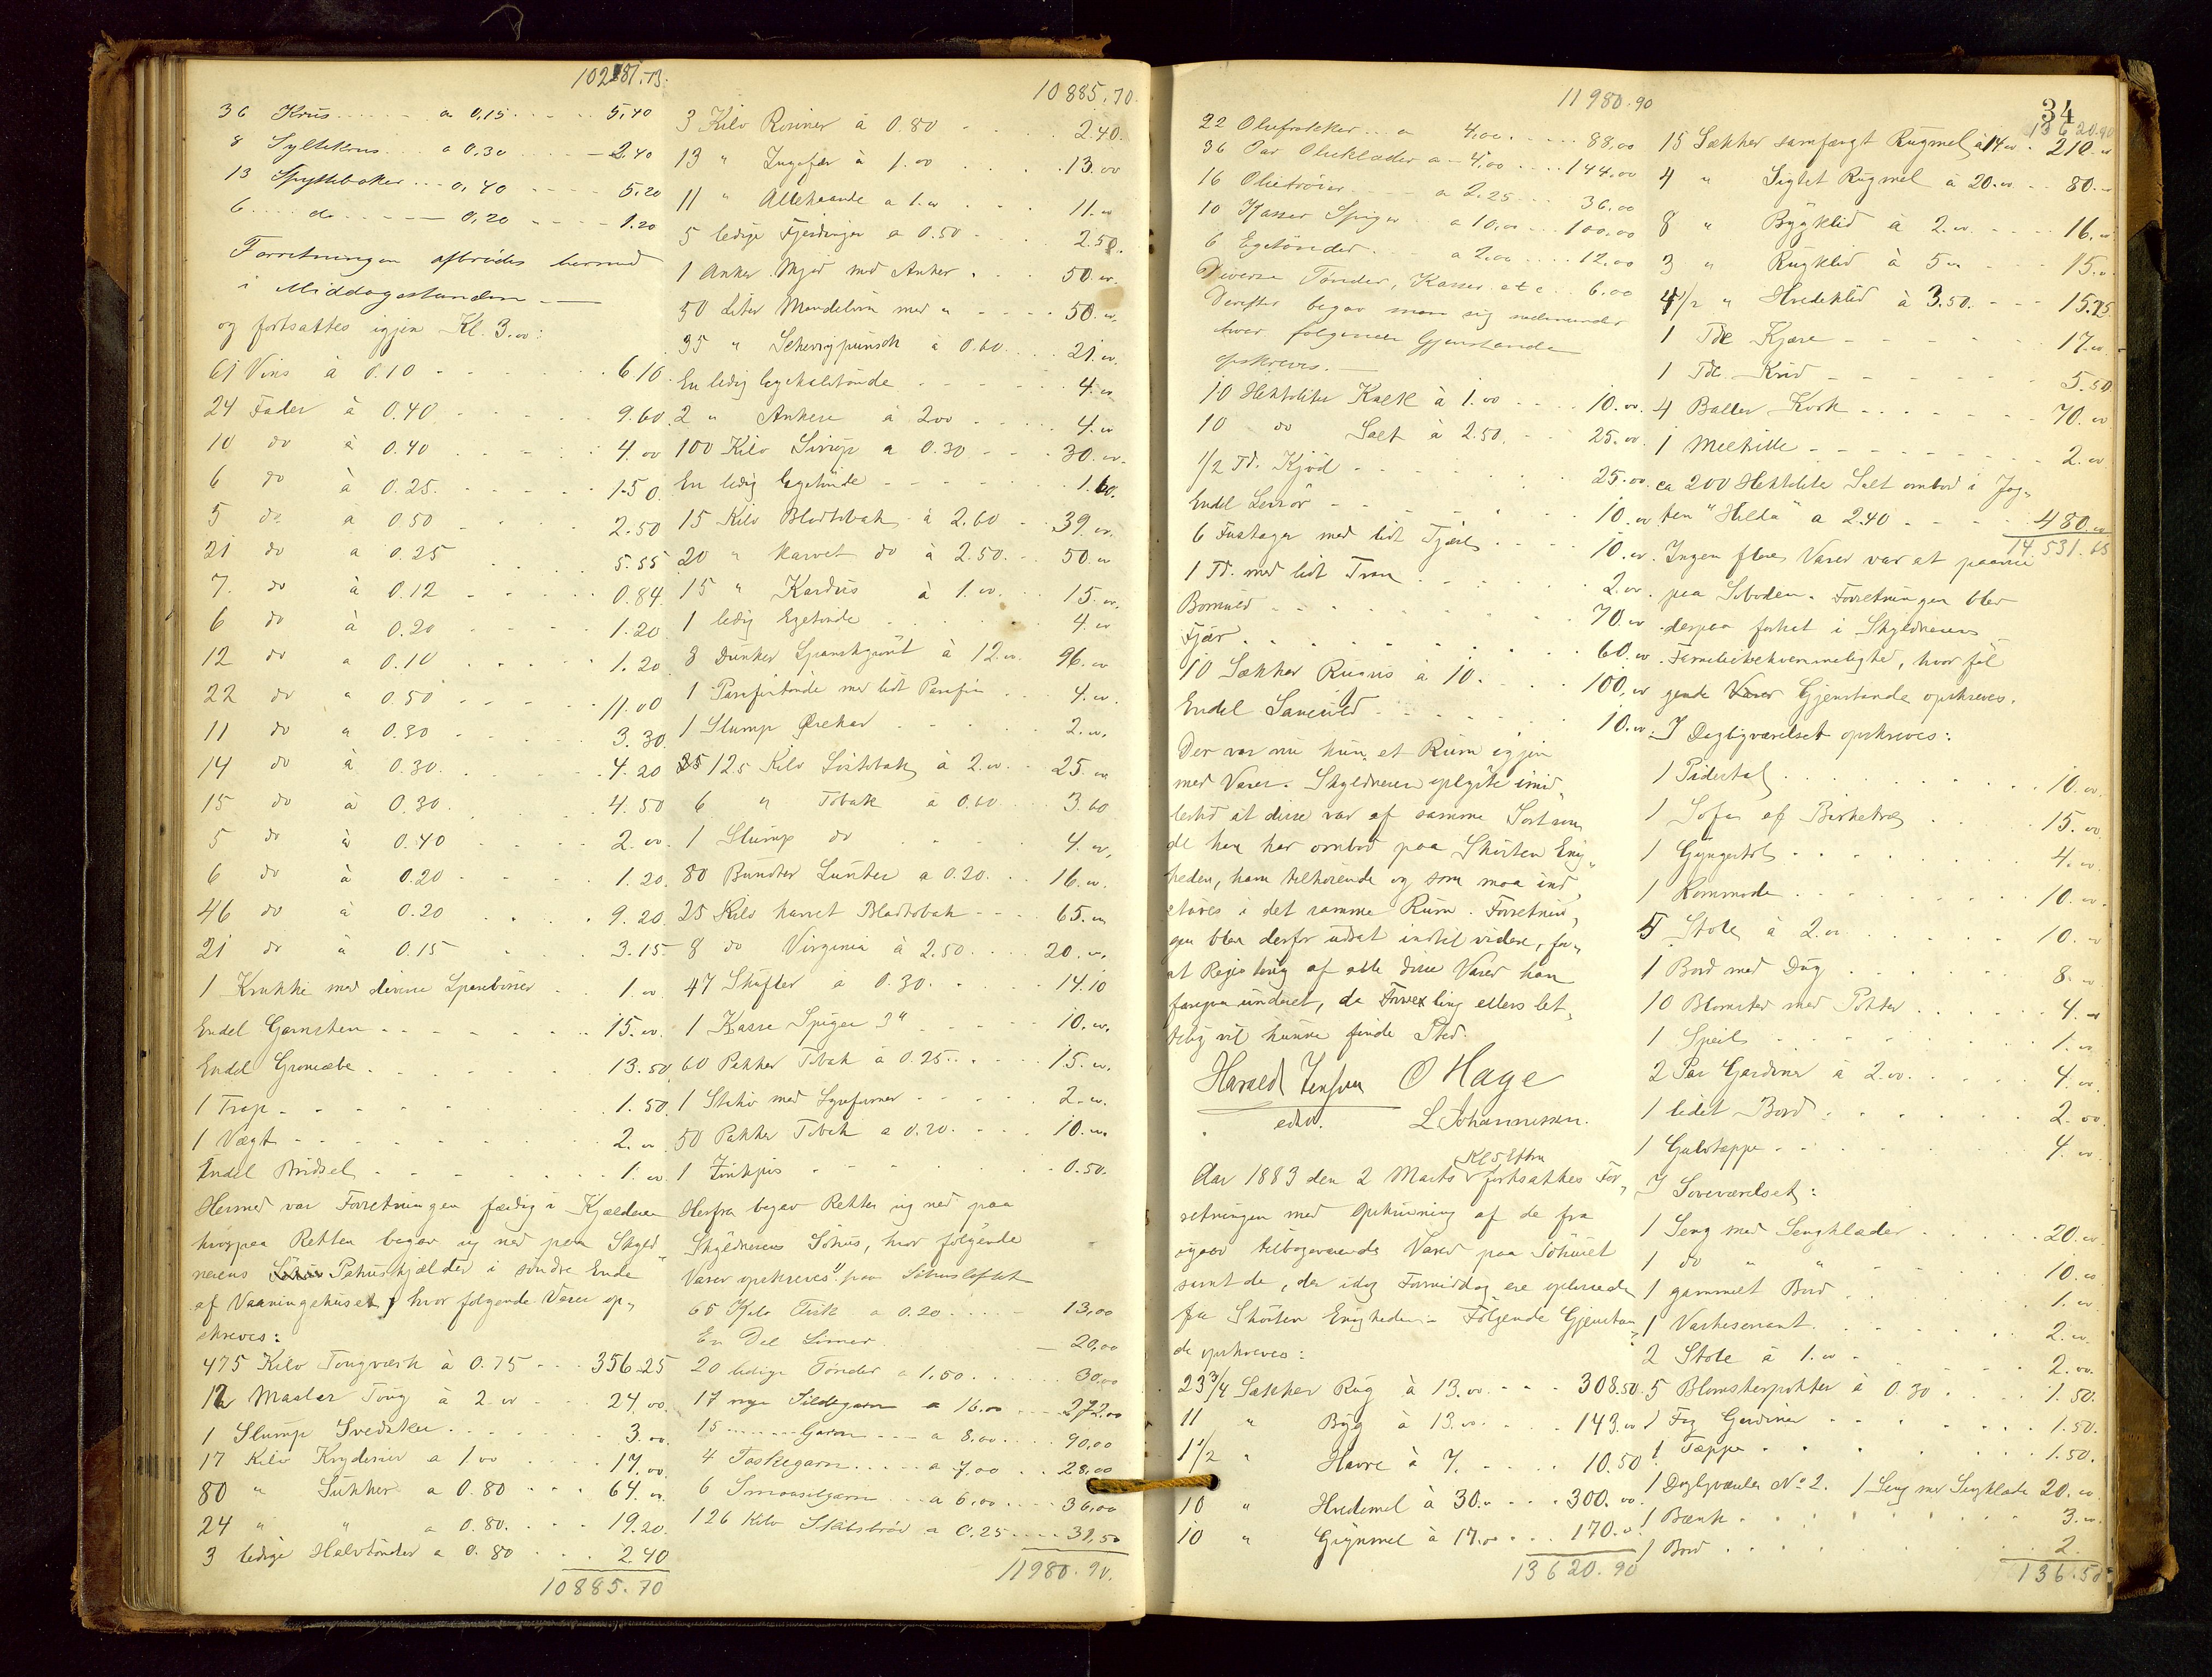 102187.13.
36 Krus a 0,15 5,40
8 Syltekrus a 0,30 2,40
13 Spyttebakker 0,40 5.20
6 do 0,20 1.20
Forretningen afbrödes hermed
i Middagsstunden
og fortsattes igjen Kl. 3.00:
61 à 0.10 6 10
24 Fade à 0.40 9.60
10 do à 0.40 4.00
6 do à 0.25 1.50
5 do a 0.50 2.50
21 do a 0.25 5.55
7. do à 0.12 0.84
6 do à 0.20 1.20
12 do a 0.10 1.20
22 do a 0.50 11.00
11 do a 0.30 3.30
14 do à 0.30. 4.20
15 do à 0.30. 4.50
5 do à 0.40 2.00
6 do à 0.20 1.20
46 do à 0.20 9.20
21 do à 0.15 3.15
1 Krukke med diverse 1.00
Endel Garnsten 15.00
Endel Grønsæbe 13.50
1 Trap 1.50
1 Vægt 2.00
Endel 1.00
Hermed var Forretningen færdig i Kjælderen
hvorpaa Retten begav sig ned paa Skyld-
nerens Pakhuskjælder i søndre Ende
af Vaaningshuset, hvor følgende Varer op-
skreves:
475 Kilo Tougværk à 0.75 356.25
12 Master Toug à 2.00 24.00
1 Slump Svedsker 3.00
17 Kilo Kryderier a 1.00 17.00
80 " Sukker a 0.80 64.00
24 " " a 0.80. 19.20
3 ledige Halvtönder a 0.80 2.40
10885.70
10885.70
3 Kilo Rosiner à 0.80 2.40
13 " Ingefær à 1.00 13.00
11 " Allehaande a 1.00 11.00
5 ledige Fjerdinger a 0.50 2.50
1 Anker Mjød med Anker 50.00
50 Liter Mandelvin med " 50.00
35 " Scherrypunsch à 0.60 21.00
En ledig 4.00
2 " Ankere à 2.00 4.00
100 Kilo Sirup a 0.30 30.00
En ledig Egetönde 1.60
15 Kilo Bladtobak à 2.60 39.00
20 " karvet do à 2.50 50.00
15 " Kardus à 1.00 15.00
1 ledig Egetønde 4.00
8 Dunker Spanskgrønt à 12.00 96.00
1 Parafintønde med lidt Parafin 4.00
1 Slump 2.00
12.5 Kilo Tobak à 2.00 25.00
6 " Tobak à 0.60 3.60
1 Slump do 4.00
80 Bundter Lunter a 0.20 16.00
25 Kilo karvet Bladtobak 65.00
8 do Virginia à 2.50 20.00
47 Skufler a 0.30 14.10
1 Kasse Spiger 3" 10.00
60 Pakker Tobak à 0.25 15.00
1 med 2.00
50 Pakker Tobak a 0.20 10.00
1 0.50.
Herfra begav Retten sig ned paa
Skyldnerens Söhus, hvor følgende
Varer opskreves: paa Söhusloftet
65 Kilo Fisk a 0.20 13,00
En Del Liner 20,00
20 ledige Tönder a 1,50 30,00
17 nye Sildegarn a 16.00 272.00
15 Garn a 8,00 90,00
4 Torskegarn a 7,00 28,00
6 Smaaseigarn a 6,00 36,00
126 Kilo Skibsbrød a 0.25 31,50
11980.90.
11980.90
22 Oliefrakker a 4,00 88,00
36 Par Olieklæder a 4,00 144.00
16 Olietröier a 2.25 36.00
10 Kasser Spiger a 10,00 100,00
6 Egetönder a 2,00 12,00
Diverse Tönder, Kasser etc 6.00
Derefter begav man sig nedenunder
hvor følgende Gjenstande
opskreves.
10 Hektoliter Kalk à 1.00 10.00
10 do Salt à 2.50 25.00
1/2 Td. Kjød 25.00
Endel 10.00
6 Fustager med lidt Tjære 10.00
1 Td. med lidt Tran 2.00
Bomuld 70.00
Fjær 60.00
10 Sækker à 10. 100.00
Endel 10.00
Der var nu kun et Rum igjen
med Varer. Skyldneren oplyste imid-
lertid at disse var af samme Sort som
de han har ombord paa Skøiten Enig-
heden, ham tilhørende og som maa ind-
i det samme Rum. Forretnin-
gen blev derfor udsat indtil videre, for
at Registrering af alle disse Varer kan
foregaa under et, da Forvexling ellers let-
telig vil kunne finde Sted.
Harald Jensen O Hage
edsv. L Johannessen.
Aar 1883 den 2 Marts Kl 5 Efttm fortsattes For-
retningen med Opskrivning af de fra
igaar tilbageværende Varer paa Söhuset
samt de, der idag Formiddag ere oplossede
fra Skøiten Enigheden. Følgende Gjenstan-
de opskreves:
23 3/4 Sækker Rug à 13.00 308.50
11 " Byg à 13.00 143.00
1 1/2 " Havre à 7. 10.50
10 " Hvedemel à 30.00 300.00
10 " Grynmel à 17.00 170.00
13620.90
34
13620.90
15 Sækker samfængt Rugmel à 14.00 210.00
4 " Sigtet Rugmel à 20.00 80.00
8 " Bygklid à 2.00 16.00
3 " Rugklid à 5.00 15.00
4 1/2 " Hvedeklid à 3.50 15.75
1 Tde Tjære 17.00
1 Tde Krid 5.50
4 Baller Kork 70.00
1 Melkitte 2.00
ca 200 Hektoliter Salt ombord i Jag-
ten "Hilda" a 2.40 480.00
14.531.65
Ingen flere Varer var at paavise
paa Söboden. Forretningen blev
derpaa fortsat i Skyldnerens
Familiebekvemmelighed, hvor føl
gende Gjenstande opskreves.
I Dagligværelset opskreves:
1 Pidestal 10.00
1 Sofa af Birketræ 15.00
1 Gyngestol 4.00
1 Kommode 10.00
5 Stole à 2.00 10.00
1 Bord med Dug 8.00
10 Blomster med Potter 4.00
1 Speil 1.00
2 Par Gardiner à 2.00 4.00
1 lidet Bord 2.00
1 Gulvteppe 4.00
I Soveværelset:
1 Seng med Sengklæder 20.00
1 do " " 10.00
1 gammelt Bord 1.00
1 Vaskeservant 2.00
2 Stole à 1.00 2.00
5 Blomsterpotter à 0.30 1.50.
1 Fag Gardiner 1.50.
1 Tæppe 1.50.
1 No 2. 1 Seng med Sengklæde 20.00
1 Bænk 3.00
1 Bord 2.
136.50